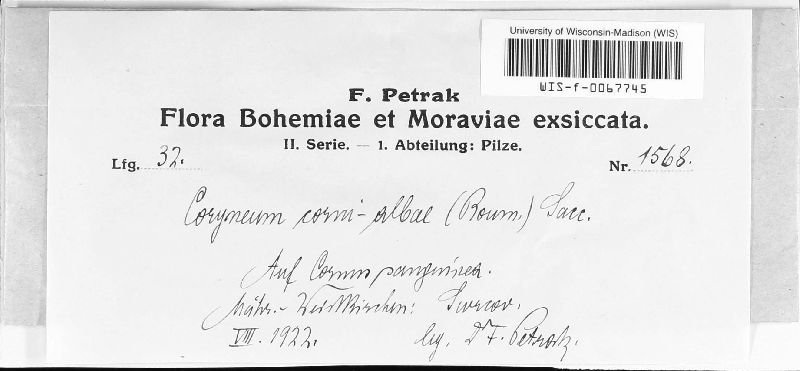 University of Wisconsin-Madison (WIS)
WIS-f-0067745
F. Petrak
Flora Bohemiae et Moraviae exsiccata.
II. Serie. — 1. Abteilung: Pilze.
Lfg. 32.
Nr. 1568.
Coryneum corni-albae (Roum.) Sacc.
Auf Cornus sanguinea.
Mähr.-Weisskirchen:
VIII. 1922.
lig. Dr F. Petrak.